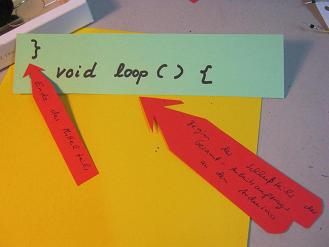 }
void loop () {
Ende des Mittelteils
Beginn des Schleifenteils der
Gesamt-Arbeitsanweisung
an den Arduino